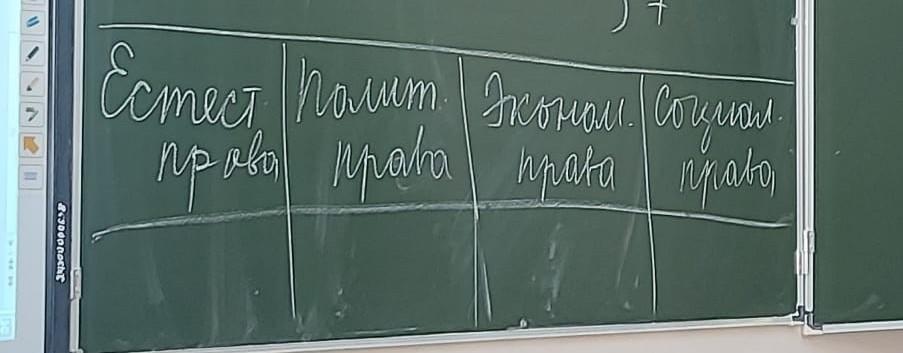 Естест. Полит. Эконом. Социал.
права права права права